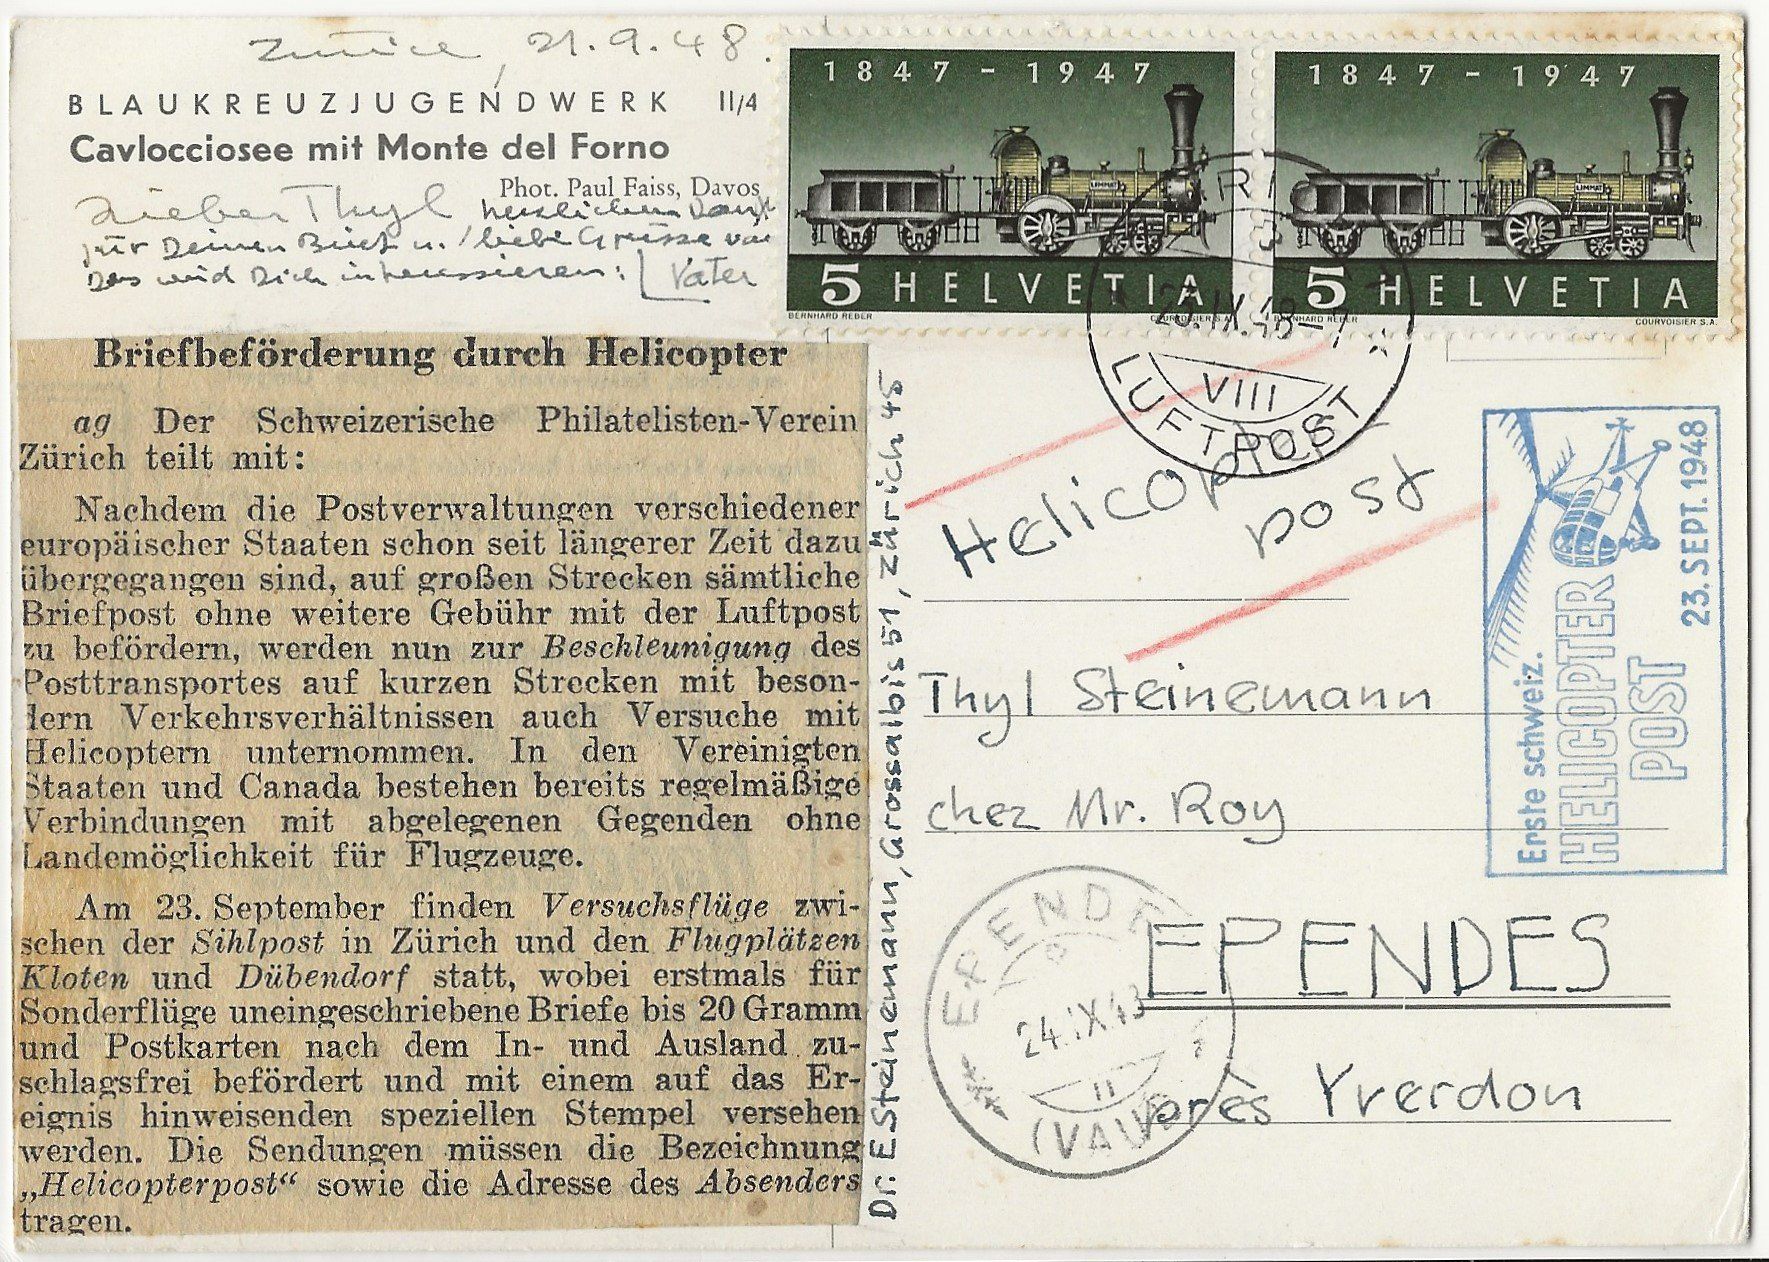 Zürich, 21.9.48.
BLAUKREUZJUGENDWERK II/4
Cavlocciosee mit Monte del Forno
Phot. Paul Faiss, Davos
Lieber Thyl herzlichen Dank
für Deinen Brief u. liebe Grüsse von
Das wird Dich interessieren: Vater
1847 - 1947
LIMMAT
5 HELVETIA
BERNHARD REBER COURVOISIER S.A.
1847 - 1947
LIMMAT
5 HELVETIA
BERNHARD REBER COURVOISIER S.A.
23.IX.48-7
VIII
LUFTPOST
Briefbeförderung durch Helicopter
ag Der Schweizerische Philatelisten-Verein
Zürich teilt mit:
Nachdem die Postverwaltungen verschiedener
europäischer Staaten schon seit längerer Zeit dazu
übergegangen sind, auf großen Strecken sämtliche
Briefpost ohne weitere Gebühr mit der Luftpost
zu befördern, werden nun zur Beschleunigung des
Posttransportes auf kurzen Strecken mit beson-
dern Verkehrsverhältnissen auch Versuche mit
Helicoptern unternommen. In den Vereinigten
Staaten und Canada bestehen bereits regelmäßige
Verbindungen mit abgelegenen Gegenden ohne
Landemöglichkeit für Flugzeuge.
Am 23. September finden Versuchsflüge zwi-
schen der Sihlpost in Zürich und den Flugplätzen
Kloten und Dübendorf statt, wobei erstmals für
Sonderflüge uneingeschriebene Briefe bis 20 Gramm
und Postkarten nach dem In- und Ausland zu-
schlagsfrei befördert und mit einem auf das Er-
eignis hinweisenden speziellen Stempel versehen
werden. Die Sendungen müssen die Bezeichnung
„Helicopterpost“ sowie die Adresse des Absenders
tragen.
Dr. E Steinemann, Grossalbis 51, Zürich 45
Helicopter-
post
Erste schweiz.
HELICOPTER
POST
23. SEPT. 1948
Thyl Steinemann
chez Mr. Roy
EPENDES
près Yverdon
EPENDES
24.IX.48
II
(VAUD)